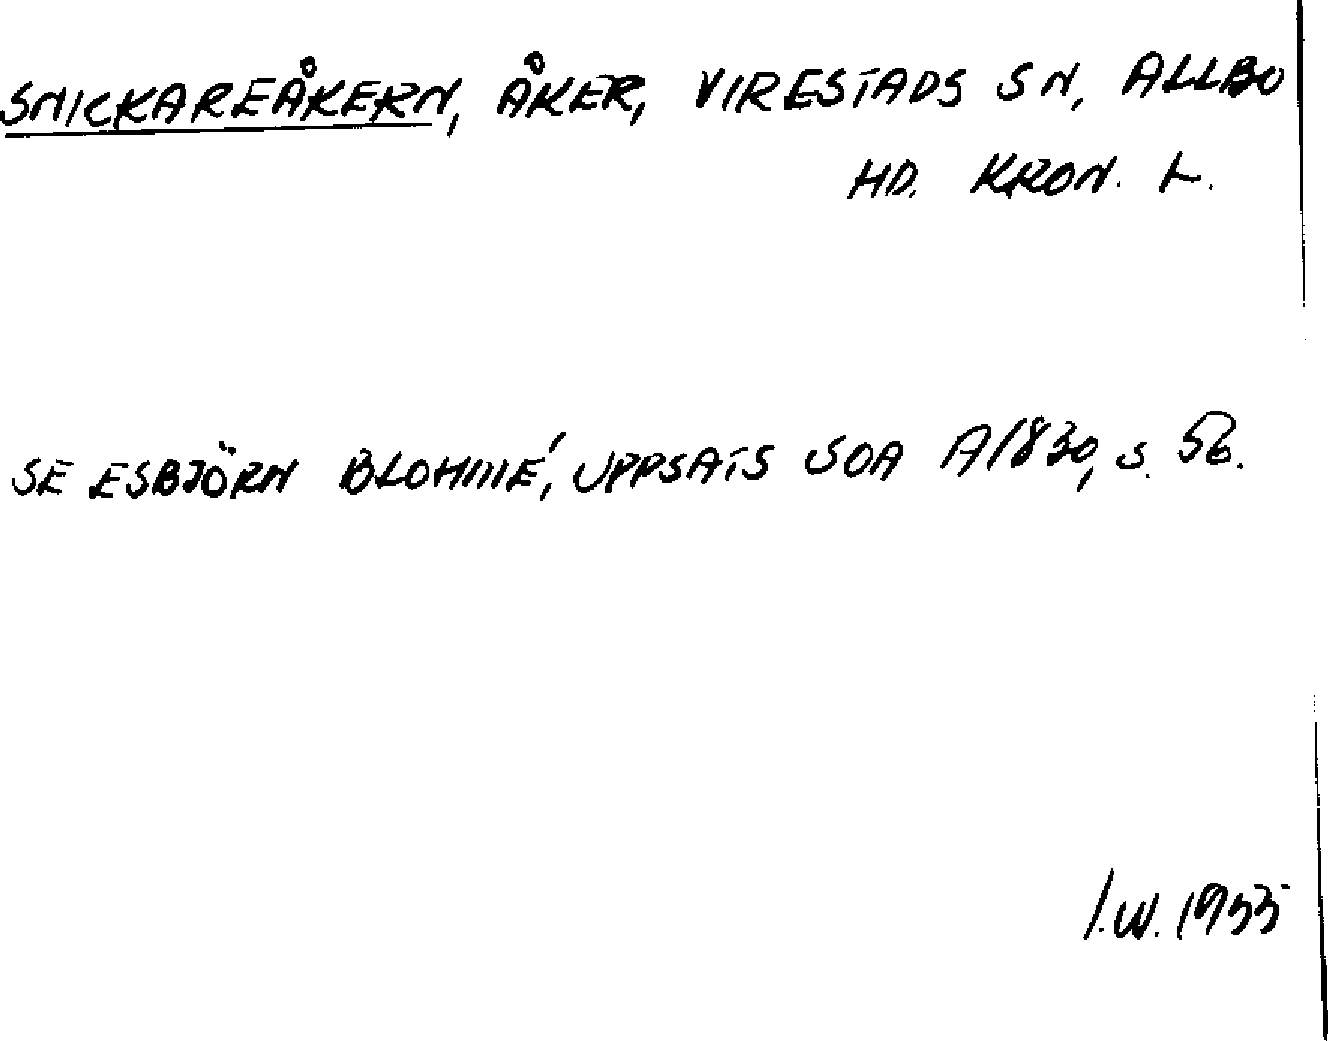 SNICKAREÅKERN, ÅKER, VIRESTADS SN, ALLBO
HD. KRON. L.
SE ESBJÖRN BLOHMÉ, UPPSATS SOA A1830, S. 56.
I.W. 1955